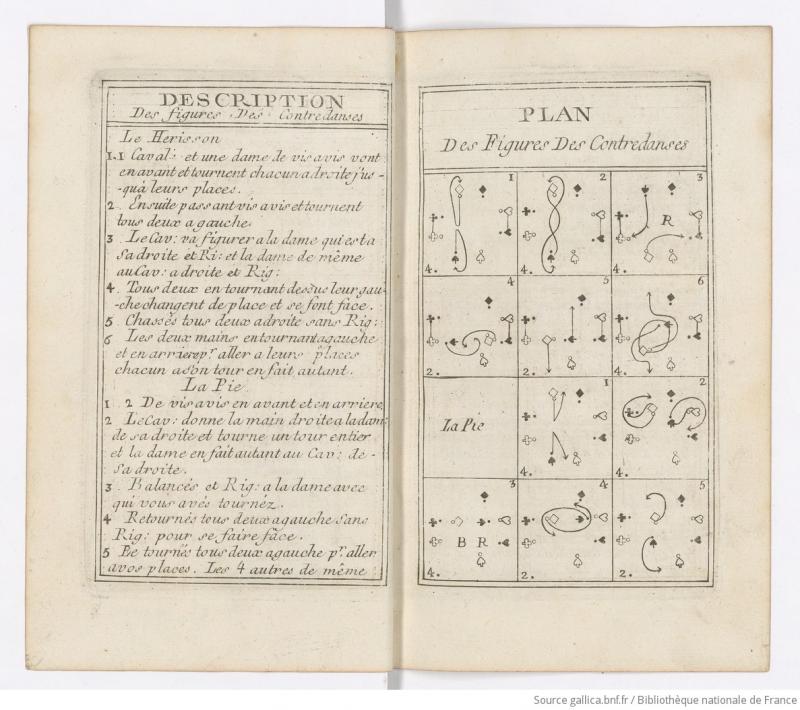 DESCRIPTION
Des figures Des Contredanses
Le Herisson
1.1 Caval: et une dame de vis avis vont
en avant et tournent chacun a droite jus-
-quà leurs places.
2. Ensuite passant vis avis et tournent
tous deux a gauche.
3. Le Cav: va figurer a la dame qui est a
sa droite et Ri: et la dame de même
au Cav: a droite et Rig:
4. Tous deux en tournant dessus leur gau-
-che changent de place et se font face.
5. Chassés tous deux a droite sans Rig:
6 Les deux mains en tournant a gauche
et en arriere pr. aller a leurs places
chacun a son tour en fait autant.
La Pie
1. 2 De vis avis en avant et en arriere
2 Le Cav: donne la main droite a la dam
de sa droite et tourne un tour entier
et la dame en fait autant au Cav: de
sa droite.
3. Balancés et Rig: a la dame avec
qui vous avés tournéz.
4 Retournés tous deux a gauche sans
Rig: pour se faire face.
5 Re tournés tous deux a gauche pr. aller
a vos places. Les 4 autres de même
PLAN
Des Figures Des Contredanses
1 2 3
R
4. 4. 4.
4 5 6
2. 2. 4.
1 2
La Pie
4. 4.
3 4 5
B R
4. 2. 2.
Source gallica.bnf.fr / Bibliothèque nationale de France